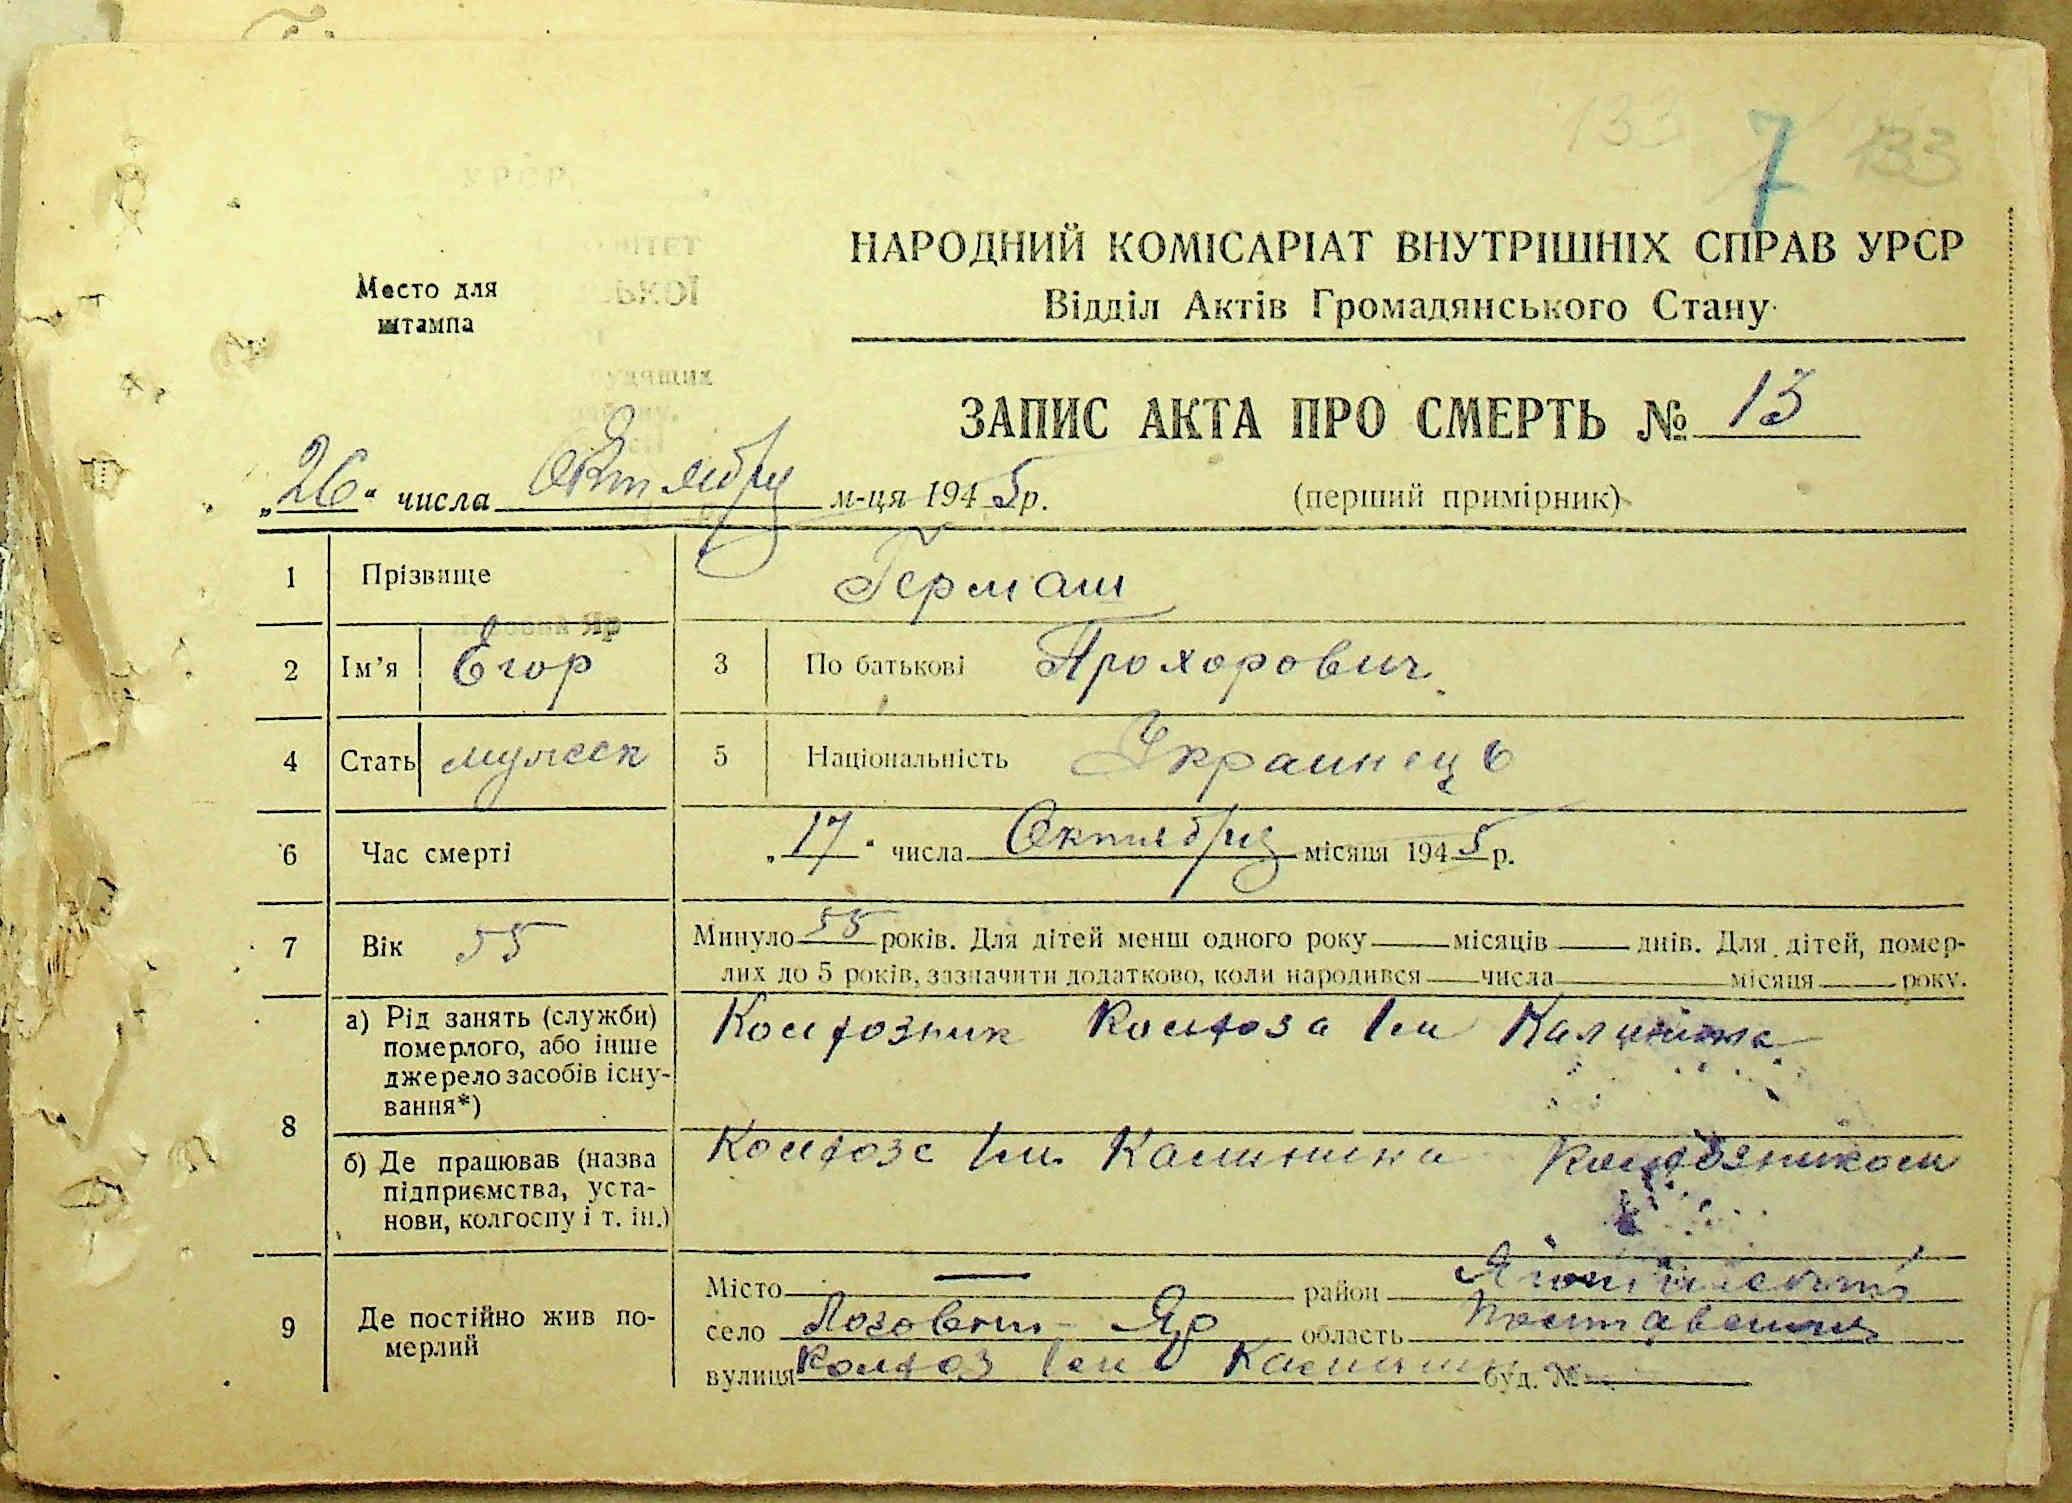 133 7 133
НАРОДНИЙ КОМІСАРІАТ ВНУТРІШНІХ СПРАВ УРСР
Место для
штампа
Відділ Актів Громадянського Стану
ЗАПИС АКТА ПРО СМЕРТЬ № 13
„26“ числа Октября м-ця 1945 р.
(перший примірник)
1 Прізвище Гермаш
2 Ім'я Егор 3 По батькові Прохорович
4 Стать мужск 5 Національність Украинець
6 Час смерті „17“ числа Октября місяця 1945 р.
7 Вік 55 Минуло 55 років. Для дітей менш одного року місяців днів. Для дітей, помер-
лих до 5 років, зазначити додатково, коли народився числа місяця року.
8 а) Рід занять (служби) померлого, або інше джерело засобів існу-вання*) Колхозник Колхоза Им Калинина
б) Де працював (назва підприємства, уста-нови, колгоспу і т. ін.) Колхозе Им. Калинина Колхозником
9 Де постійно жив по-мерлий
Місто — район
село Лозовый - Яр область Полтавская
вулиця Колхоз Им Калинина буд. №